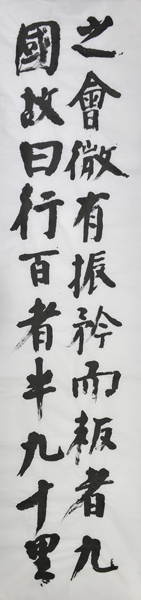 之會微有振矜而叛者九
國故曰行百者半九十里